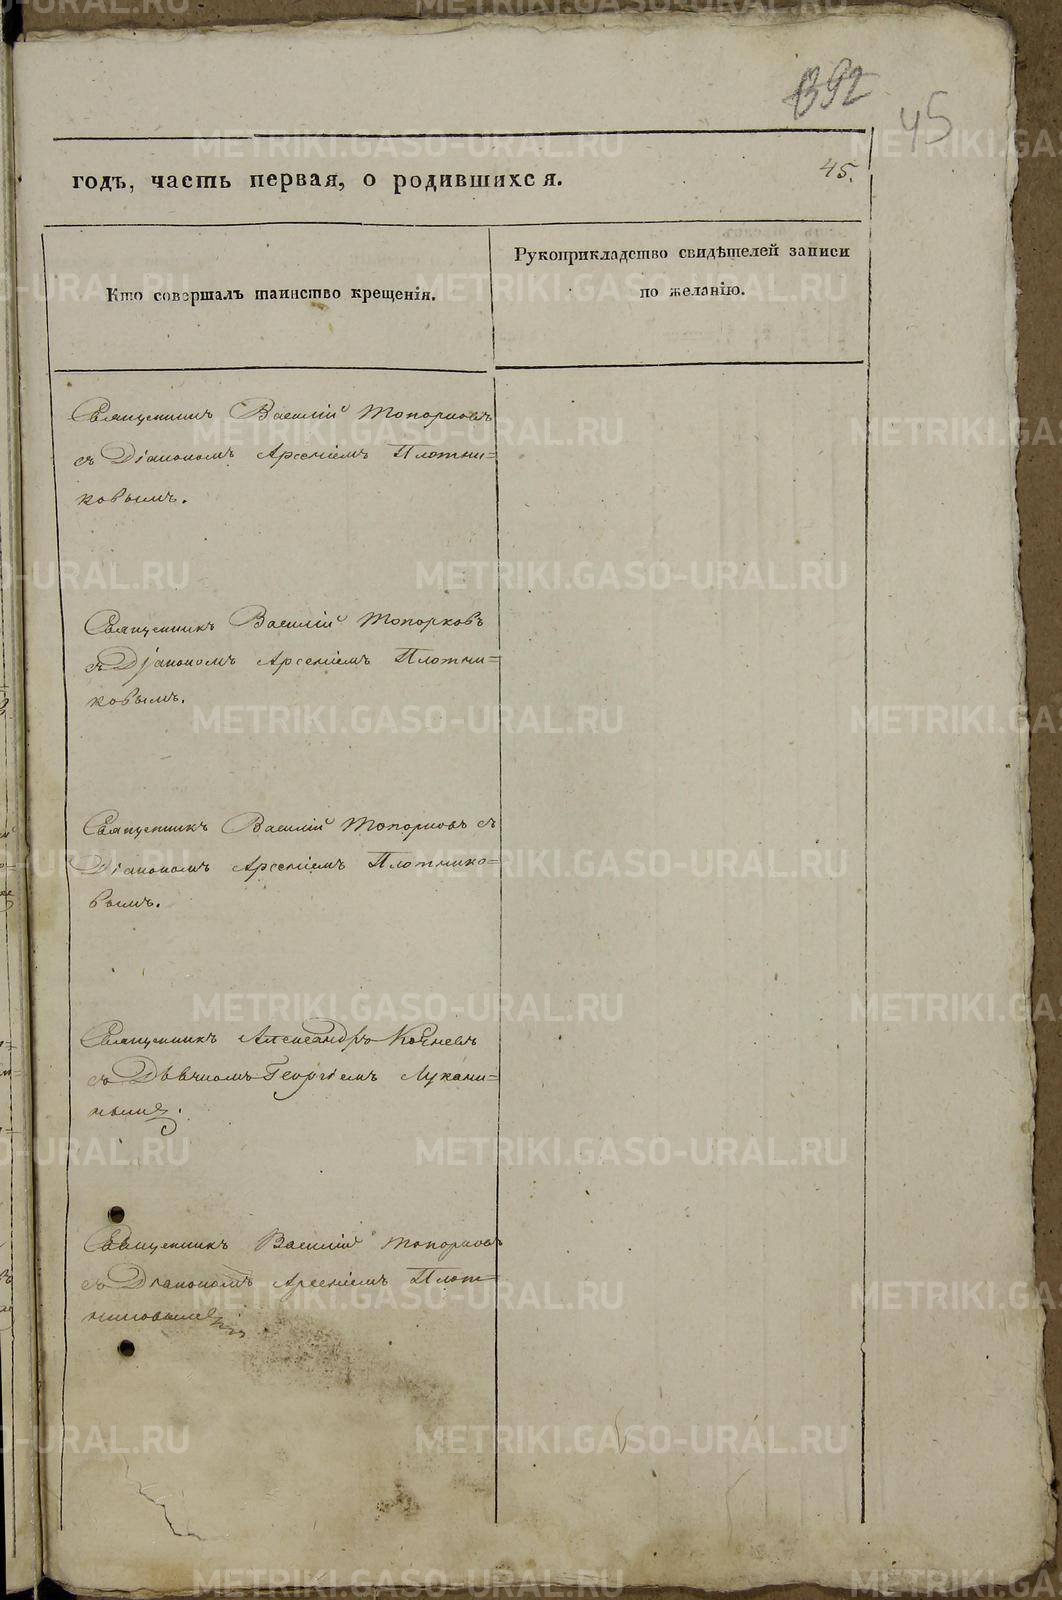 392
45
45.
годъ, часть первая, о родившихся.
Кто совершалъ таинство крещенія.
Рукоприкладство свидѣтелей записи
по желанію.
Священникъ Василій Топорковъ
съ Діакономъ Арсеніемъ Плотни=
ковымъ.
Священникъ Василій Топорковъ
съ Діакономъ Арсеніемъ Плотни=
ковымъ.
Священникъ Василій Топорковъ съ
Діакономъ Арсеніемъ Плотнико=
вымъ.
Священникъ Александръ Кочневъ
съ Дьячкомъ Георгіемъ Лукани=
нымъ.
Священникъ Василій Топорковъ
съ Діакономъ Арсеніемъ Плот=
никовымъ.
METRIKI.GASO-URAL.RU